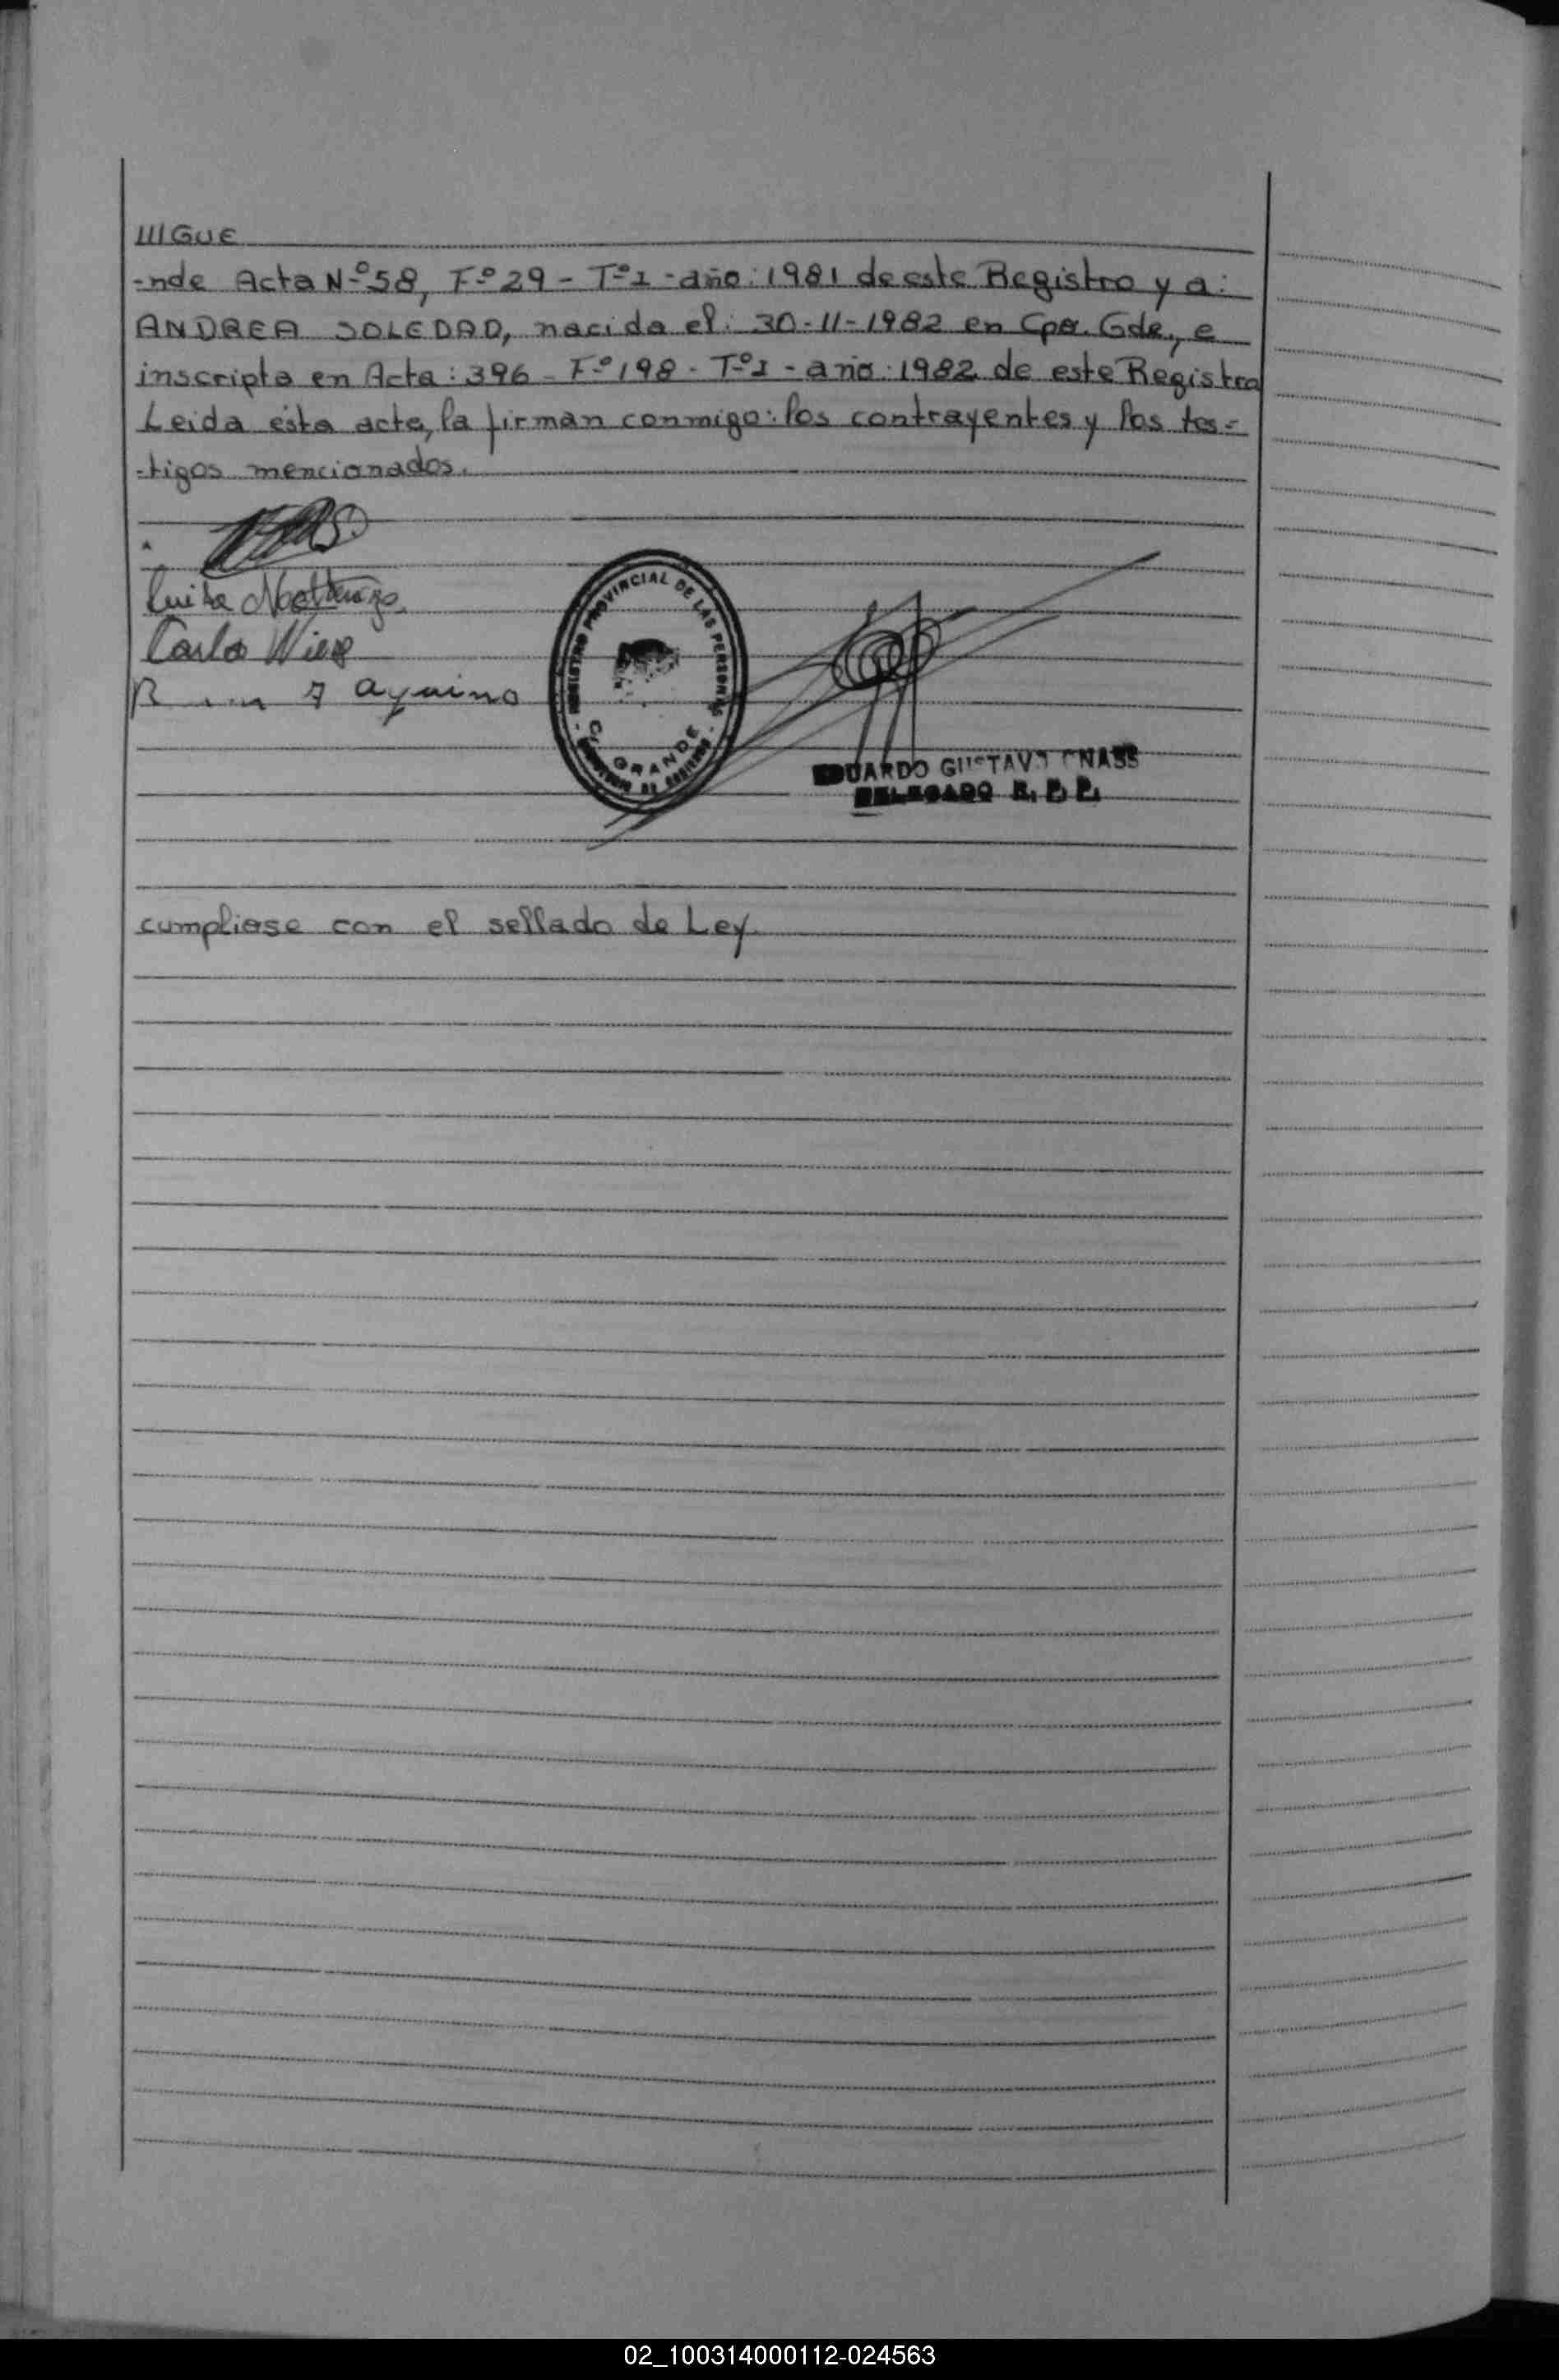 ///GUE
-nde Acta Nº58, Fº29 - Tº1 - año: 1981 de este Registro y a:
ANDREA SOLEDAD, nacida el: 30-11-1982 en Cpo. Gde., e
inscripta en Acta: 396 - Fº198 - Tº1 - año: 1982 de este Registro
Leida ésta acta, la firman conmigo: los contrayentes y los tes=
-tigos mencionados.
Carlos
Aquino
REGISTRO PROVINCIAL DE LAS PERSONAS
GRANDE
EDUARDO GUSTAVO
DELEGADO R. P. P.
cumpliose con el sellado de Ley.
02_100314000112-024563